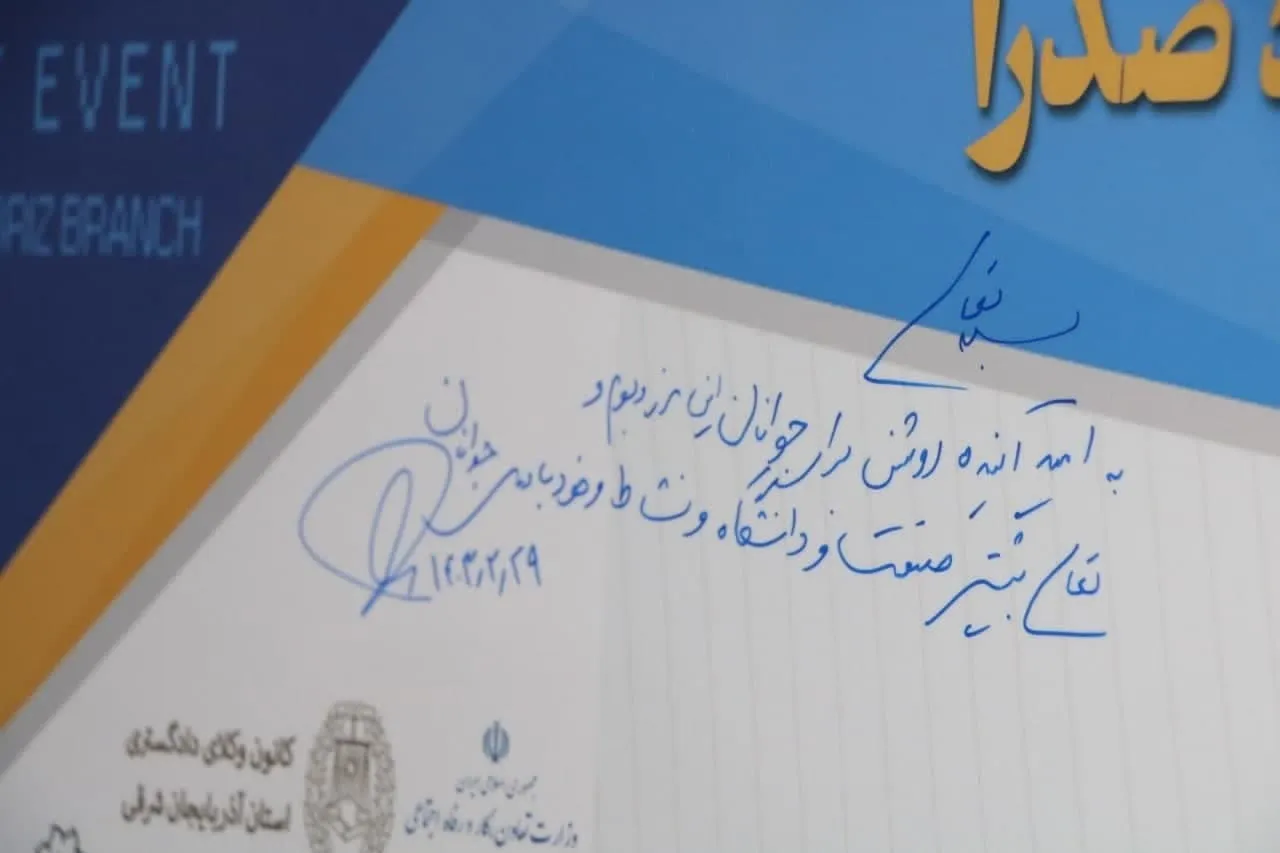 EVENT
BRANCH
صدرا
بسمه تعالی
به امید آینده روشن برای جوانان این مرز و بوم و
تعامل بیشتر صنعت و دانشگاه و نشاط و خودباوری جوانان
۱۴۰۳/۲/۲۹
کانون وکلای دادگستری
استان آذربایجان شرقی
جمهوری اسلامی ایران
وزارت تعاون، کار و رفاه اجتماعی